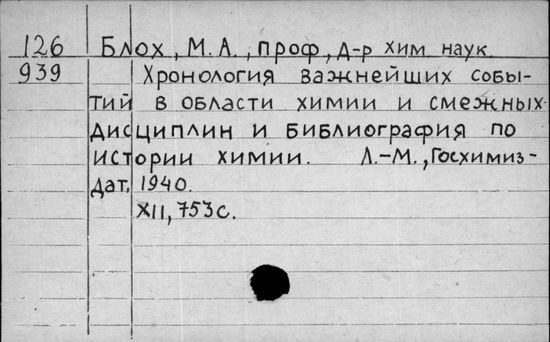 126 Блох, М.А., проф, д-р хим наук
939 Хронология важнейших собы-
тий в области химии и смежных
дисциплин и библиография по
истории химии. Л.-М., Госхимиз-
дат, 1940.
XII, 753с.